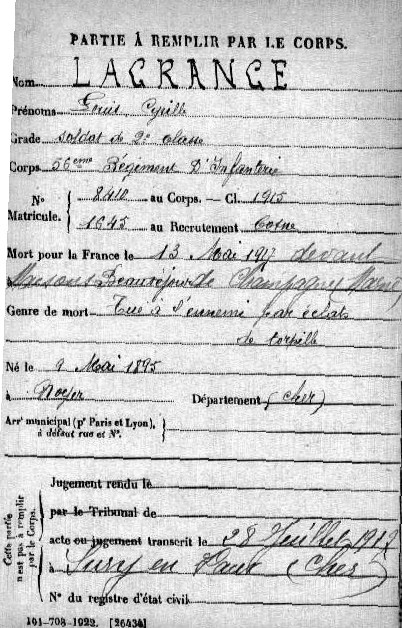 PARTIE À REMPLIR PAR LE CORPS.
Nom LAGRANGE
Prénoms Louis Cyrille
Grade soldat de 2e classe
Corps 56eme Régiment D'Infanterie
N° Matricule. { 8410 au Corps. — Cl. 1915
1645 au Recrutement Cosne
Mort pour la France le 13 Mai 1917 devant
à Maisons de Champagne Marne
Genre de mort Tué à l'ennemi par éclats
de torpille
Né le 9 Mai 1895
à Département (Cher)
Arrt municipal (pr Paris et Lyon),
à défaut rue et N°.
Cette partie n'est pas à remplir par le Corps.
Jugement rendu le
par le Tribunal de
acte ou jugement transcrit le 28 Juillet 1917
à Sury en Vaux (Cher)
N° du registre d'état civil
101-708-1922. [26434]